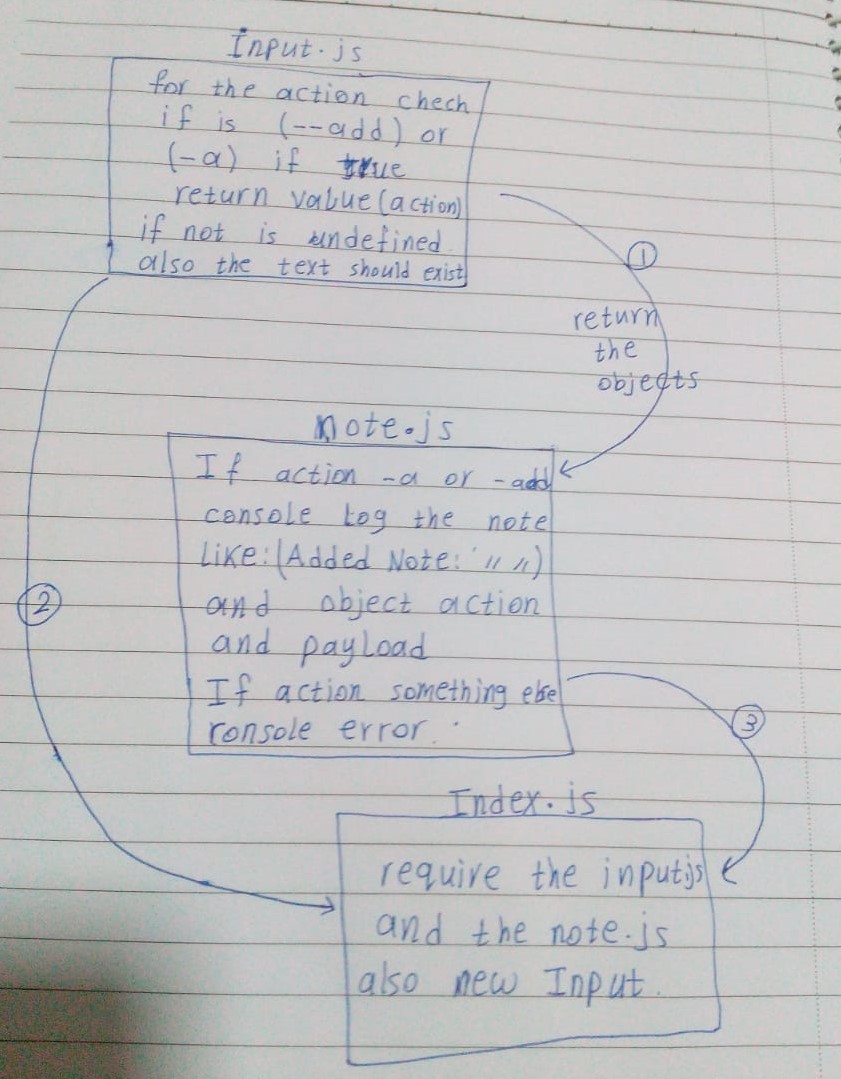 Input.js
for the action chech
if is (--add) or
(-a) if true
return value(action)
if not is undefined
also the text should exist
1
return
the
objects
note.js
If action -a or -add
console log the note
like:(Added Note: " ")
and object action
and payload
2
If action something else
console error.
3
Index.js
require the input.js
and the note.js
also new Input.